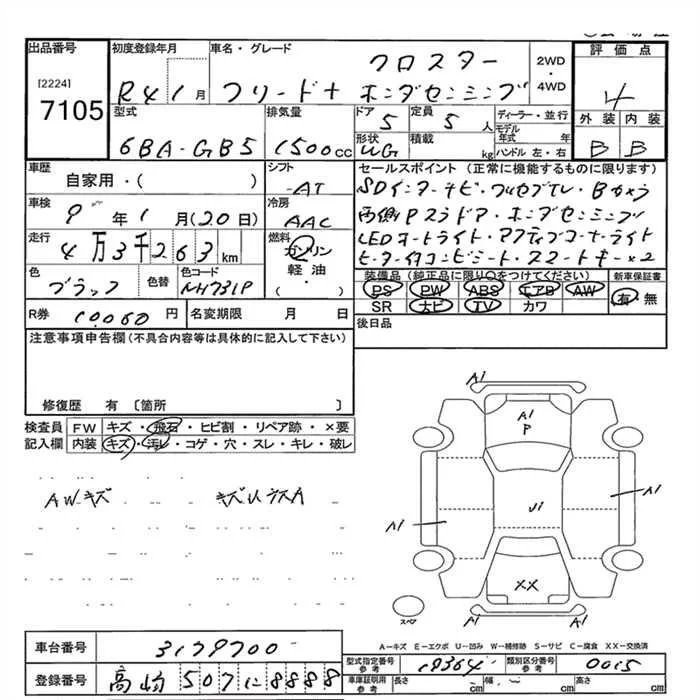 出品番号
[2224]
7105
初度登録年月
R4 1月
車名・グレード
クロスター
フリード+ ホンダセンシング
2WD
・
4WD
評価点
4
外装 内装
B B
型式
6BA-GB5
排気量
1500cc
ドア
5
定員
5人
形状
WG
積載
kg
ディーラー・並行
モデル年式 年
ハンドル 左・右
車歴
自家用・( )
シフト
AT
車検
9年1月(20日)
冷房
AAC
走行
4万3千263km
燃料
ガソリン
軽油
( )
色
ブラック
色替
色コード
NH731P
セールスポイント(正常に機能するものに限ります)
SDインターナビ・フルセグTV・Bカメラ
両側Pスラドア・ホンダセンシング
LEDオートライト・アクティブコーナーライト
ヒーター付コンビシート・スマートキー×2
装備品(純正品に限り○をつけてください)
新車保証書
PS PW ABS エアB AW
有・無
SR ナビ TV カワ
R券 10060円
名変期限 月 日
後日品
注意事項申告欄(不具合内容等は具体的に記入して下さい)
修復歴 有 〔箇所 〕
検査員
記入欄
FW キズ・飛石・ヒビ割・リペア跡・×要
内装 キズ・汚レ・コゲ・穴・スレ・キレ・破レ
AWキズ
A1
A1
P
U1
A1
A1
XX
A1
A1
スペア
A-キズ E-エクボ U-凹み W-補修跡 S-サビ C-腐食 XX-交換済
車台番号 3139700
登録番号 高崎 507 に 8888
型式指定番号
参考
19364
類別区分番号
参考
0015
車庫証明用
参考
長さ cm 幅 cm 高さ cm